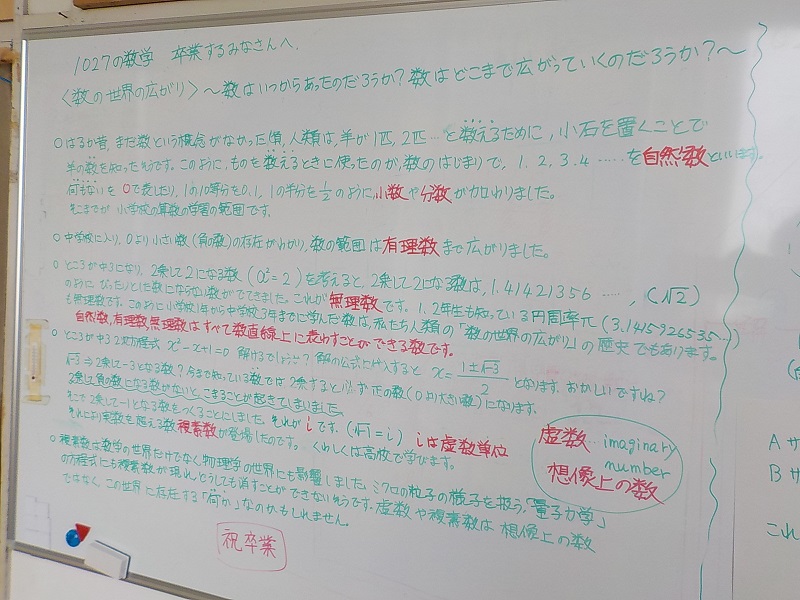 1027の数学 卒業するみなさんへ、
〈数の世界の広がり〉～数はいつからあったのだろうか?数はどこまで広がっていくのだろうか?～
○はるか昔、まだ数という概念がなかった頃、人類は、羊が1匹、2匹…と数えるために、小石を置くことで
羊の数を知ったそうです。このように、ものを数えるときに使ったのが、数のはじまりで、1.2.3.4……を自然数といいます。
何もないを0で表したり、1の10等分を0.1、1の半分を1/2のように、小数や分数が加わりました。
そこまでが小学校の算数の学習の範囲です。
○中学校に入り、0より小さい数(負の数)の存在がわかり、数の範囲は有理数まで広がりました。
○ところが中3になり、2乗して2になる数(x²=2)を考えると、2乗して2になる数は、1.41421356……、(√2)
のように ぴったりとした数にならない数がでてきました。これが無理数です。1、2年生も知っている円周率π(3.1415926535…)
も無理数です。このように小学校1年から中学校3年までに学んだ数は、私たち人類の「数の世界の広がり」の歴史でもあります。
自然数、有理数、無理数はすべて数直線上に表わすことができる数です。
○ところが中3 2次方程式 x²-x+1=0 解けるでしょうか? 解の公式に代入すると x=(1±√-3)/2 となります。おかしいですね?
√-3⇒2乗して-3となる数?今まで知っている数では2乗すると必ず正の数(0より大きい数)になります。
2乗して負の数になる数がないと、こまることが起きてしまいました。
そこで2乗して-1となる数をつくることにしました。それがiです。(√-1=i) iは虚数単位
それにより実数を超える数 複素数が登場したのです。くわしくは高校で学びます。
虚数…imaginary
number
想像上の数
○複素数は数学の世界だけでなく、物理学の世界にも影響しました。ミクロの粒子の様子を扱う、「量子力学」
の方程式にも複素数が現れ、どうしても消すことができないそうです。虚数や複素数は想像上の数
ではなく、この世界に存在する「何か」なのかもしれません。
祝卒業
Aサ
Bサ
これ